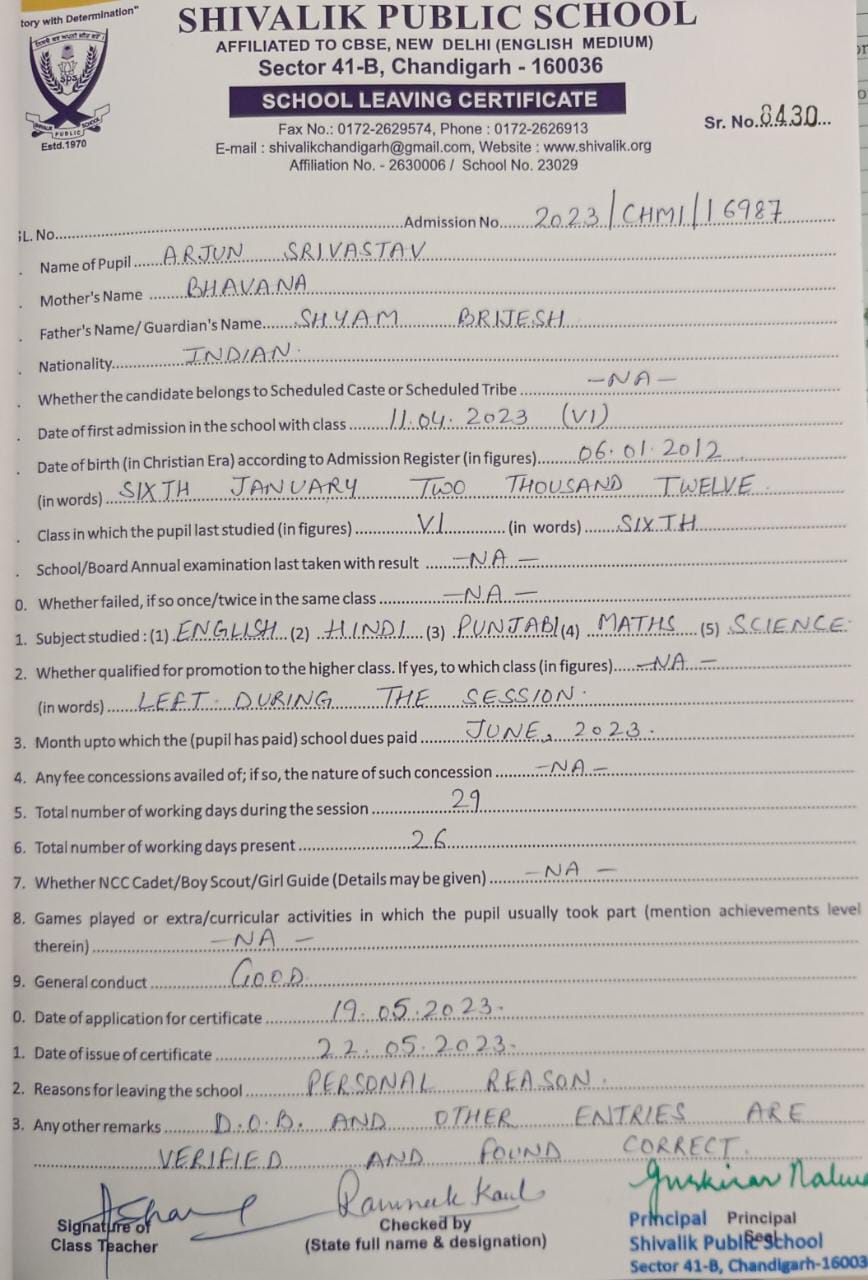 tory with Determination"
SHIVALIK PUBLIC SCHOOL
AFFILIATED TO CBSE, NEW DELHI (ENGLISH MEDIUM)
Sector 41-B, Chandigarh - 160036
SCHOOL LEAVING CERTIFICATE
Sr. No. 8430...
Fax No.: 0172-2629574, Phone : 0172-2626913
E-mail : shivalikchandigarh@gmail.com, Website : www.shivalik.org
Affiliation No. - 2630006 / School No. 23029
SPS
PUBLIC
SCHOOL
Estd.1970
L. No.......... Admission No..... 2023/CHMI/16987
Name of Pupil ..... ARJUN SRIVASTAV
Mother's Name ..... BHAVANA
Father's Name/ Guardian's Name..... SHYAM BRIJESH
Nationality..... INDIAN.
Whether the candidate belongs to Scheduled Caste or Scheduled Tribe ..... -NA-
Date of first admission in the school with class ..... 11.04.2023 (VI)
Date of birth (in Christian Era) according to Admission Register (in figures)..... 06.01.2012
(in words) SIXTH JANUARY TWO THOUSAND TWELVE
Class in which the pupil last studied (in figures) ..... VI ..... (in words) ..... SIXTH
School/Board Annual examination last taken with result ..... -NA-
0. Whether failed, if so once/twice in the same class ..... -NA-
1. Subject studied : (1) ENGLISH (2) HINDI (3) PUNJABI (4) MATHS (5) SCIENCE.
2. Whether qualified for promotion to the higher class. If yes, to which class (in figures)..... -NA-
(in words) ..... LEFT DURING THE SESSION.
3. Month upto which the (pupil has paid) school dues paid ..... JUNE, 2023.
4. Any fee concessions availed of; if so, the nature of such concession ..... -NA-
5. Total number of working days during the session ..... 29
6. Total number of working days present ..... 26
7. Whether NCC Cadet/Boy Scout/Girl Guide (Details may be given) ..... -NA-
8. Games played or extra/curricular activities in which the pupil usually took part (mention achievements level
therein) ..... -NA-
9. General conduct ..... GOOD
0. Date of application for certificate ..... 19.05.2023.
1. Date of issue of certificate ..... 22.05.2023.
2. Reasons for leaving the school ..... PERSONAL REASON.
3. Any other remarks ..... D.O.B. AND OTHER ENTRIES ARE
VERIFIED AND FOUND CORRECT.
Ramneek Kaul
Signature of
Class Teacher
Checked by
(State full name & designation)
Principal Principal
Seal
Shivalik Public School
Sector 41-B, Chandigarh-16003